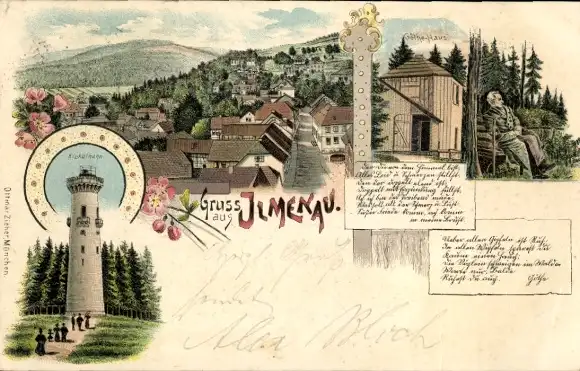 Göthe-Haus.
Kickelhahn
Gruss
aus
ILMENAU.
Der du von dem Himmel bist,
Alles Leid u Schmerzen stillest,
Den der doppelt elend ist,
Doppelt mit Erquickung füllest,
Ach ich bin des Treibens müde,
Was soll all der Schmerz u. Lust
Süsser Friede komm, ach komm
in meine Brust.
Ueber allen Gipfeln ist Ruh,
in allen Wipfeln spürest du
Kaum einen Hauch;
die Vöglein schweigen im Walde
Warte nur, balde
Ruhest du auch. Göthe
Ottmar Zieher, München.
sendet